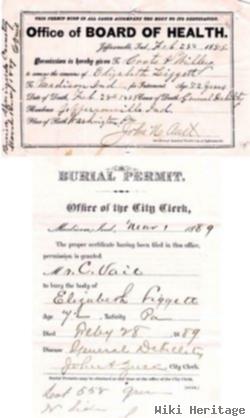 THIS PERMIT MUST IN ALL CASES ACCOMPANY THE BODY TO ITS DESTINATION.
Office of BOARD OF HEALTH.
Jeffersonville, Ind., Feb 28 1889
Permission is hereby given To Coots & Willey
to convey the remains of Elizabeth Liggett
To Madison Ind for Interment. Age 72 Years
Date of Death Feb 28 1889 Cause of Death General Debility
Residence Jeffersonville Ind
Place of Birth Washington
BURIAL PERMIT.
Office of the City Clerk,
Madison, Ind., Mar 1 1889
The proper certificate having been filed in this office,
permission is granted
Mr. C. Vail
to bury the body of
Elizabeth Liggett
Age 72 Nativity Pa
Died Feby 28 1889
Disease General Debility
City Clerk.
Burial Permits may be obtained at any time at the office of the City Clerk.
Lot 558
Wiki Heritage